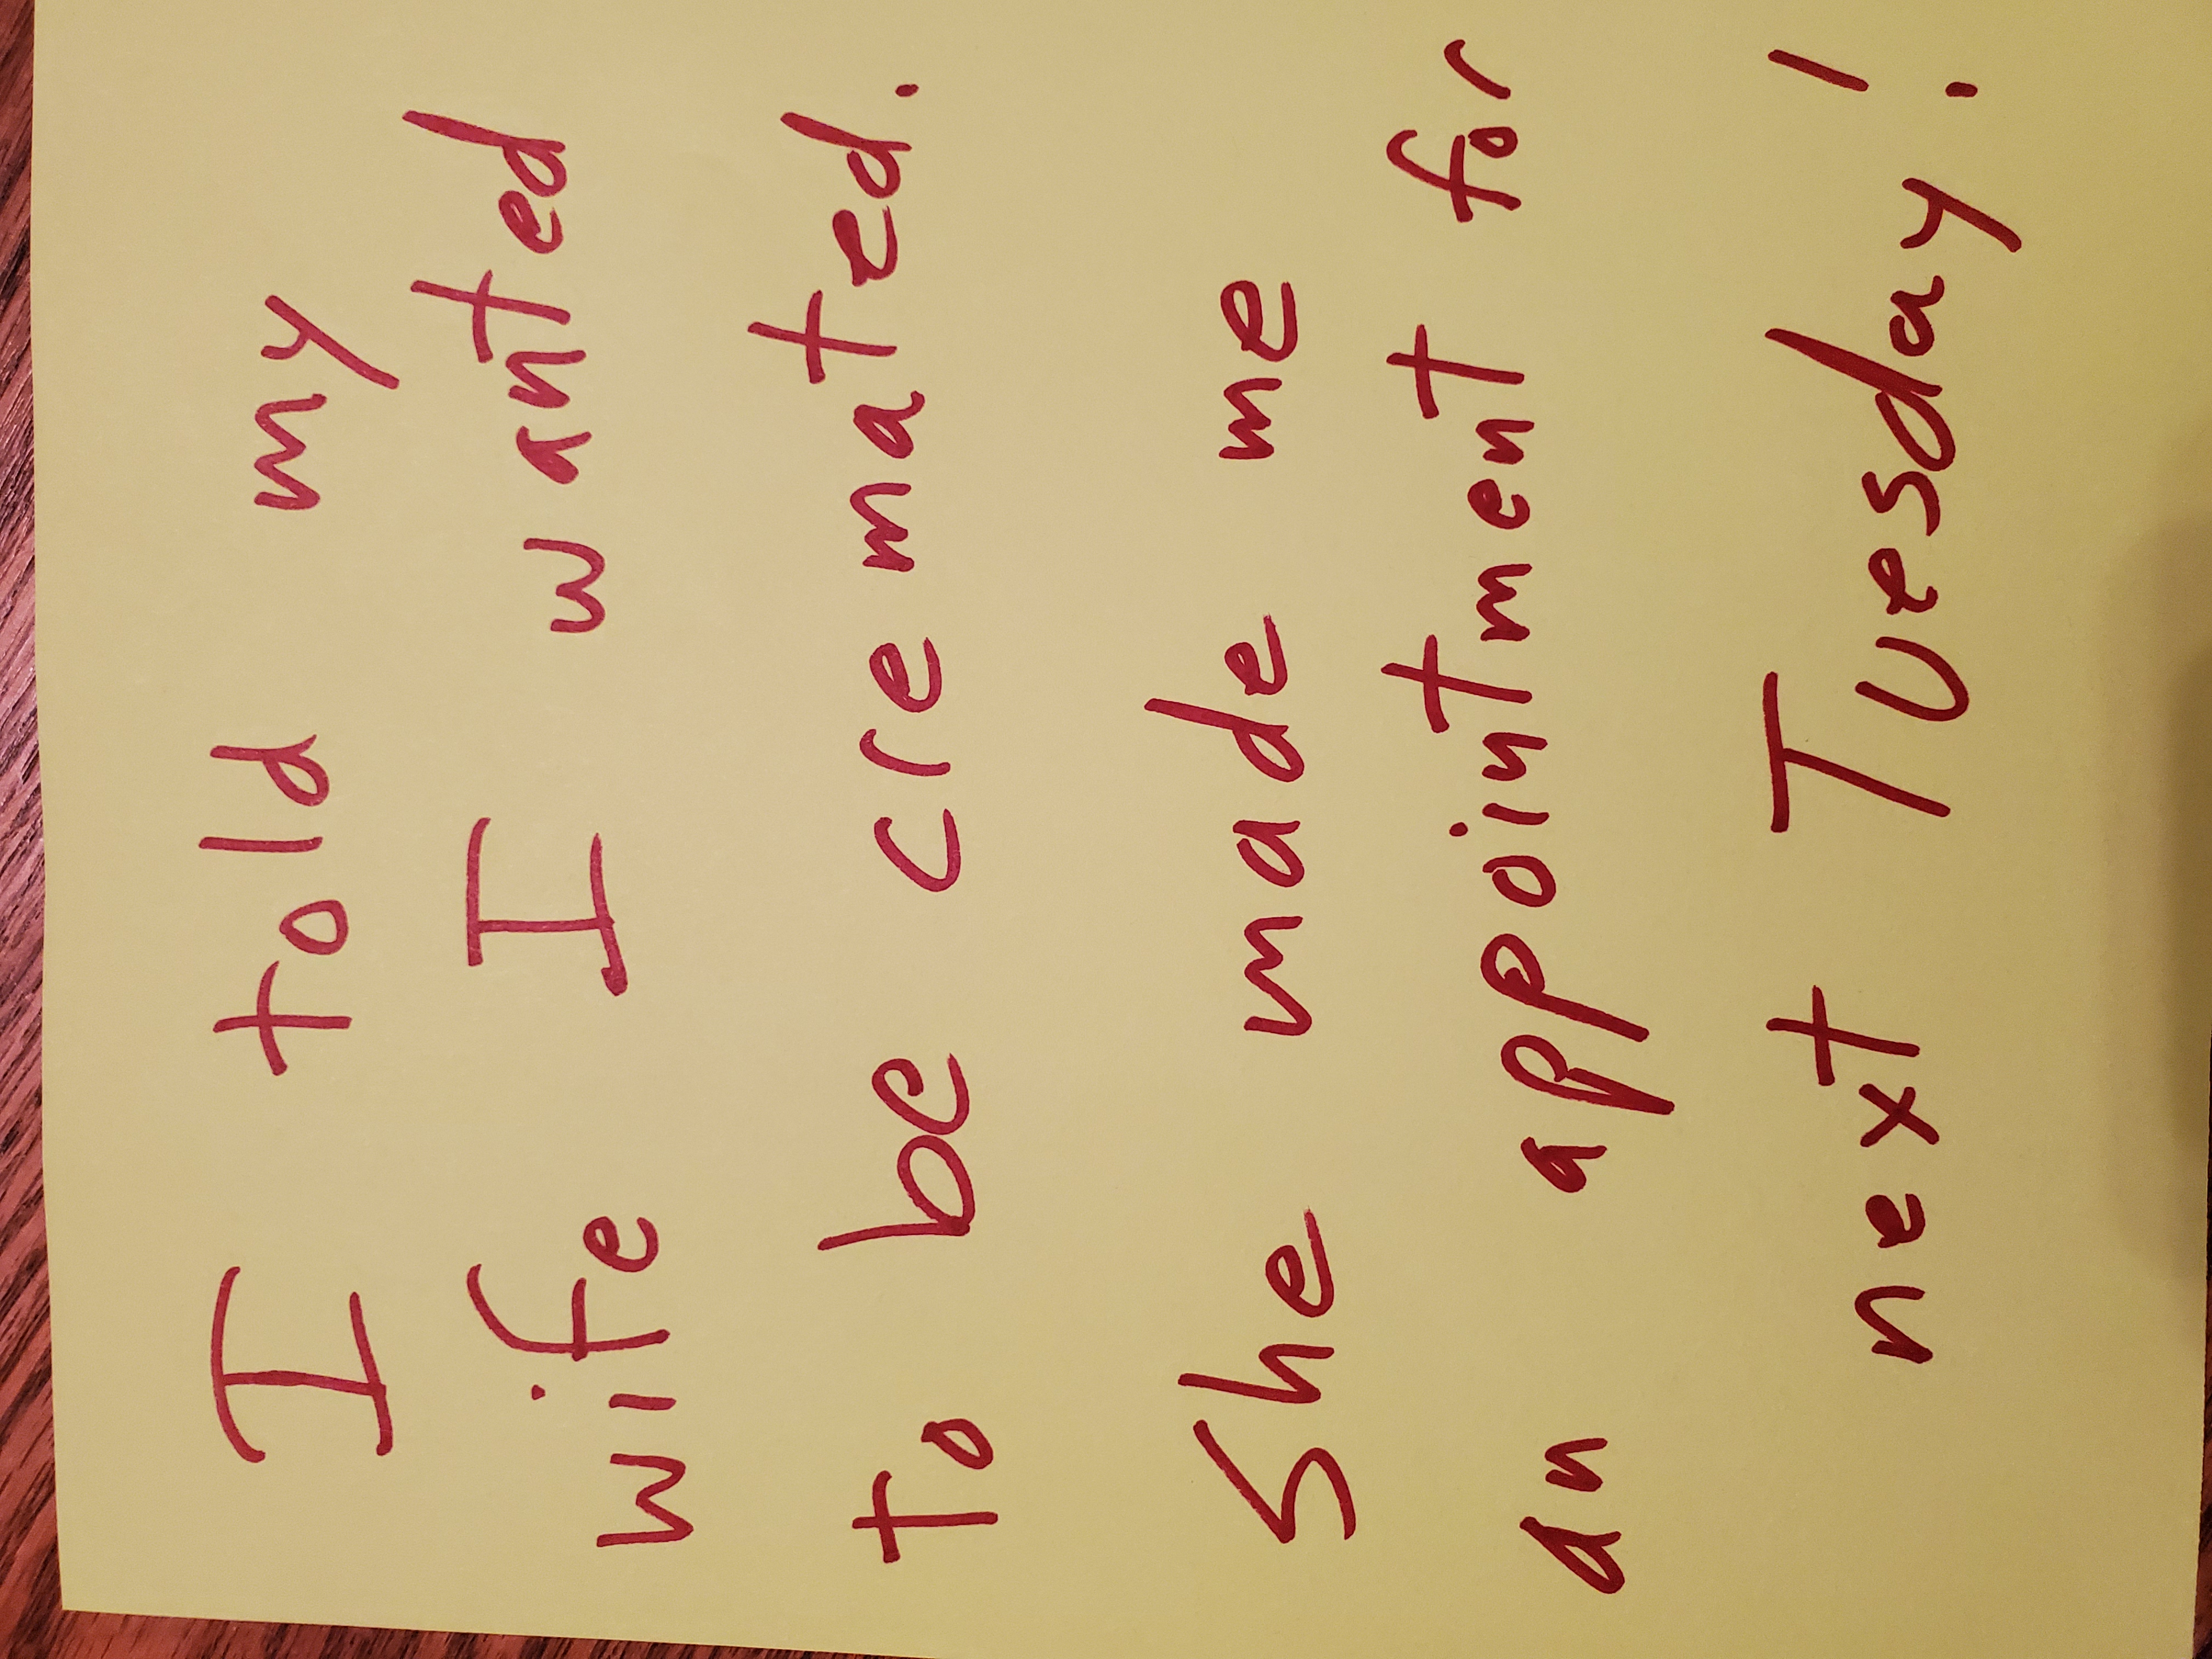 I told my
wife I wanted
to be cremated.
She made me
an appointment for
next Tuesday!